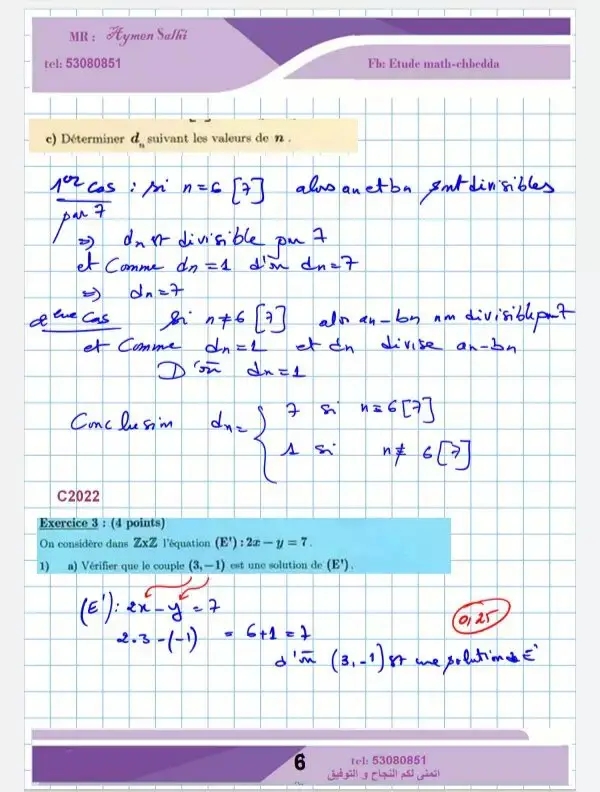 MR : Aymen Salhi
tel: 53080851
Fb: Etude math-chbedda
c) Déterminer dn suivant les valeurs de n .
1er cas : si n ≡ 6 [7] alors an et bn sont divisibles
par 7
⇒ dn est divisible par 7
et Comme dn = 1 d'où dn = 7
⇒ dn = 7
2eme cas si n ≢ 6 [7] alors an - bn non divisible par 7
et Comme dn = 1 et dn divise an - bn
D'où dn = 1
Conclusion dn = { 7 si n ≡ 6 [7]
1 si n ≢ 6 [7]
C2022
Exercice 3 : (4 points)
On considère dans ZxZ l'équation (E') : 2x − y = 7 .
1) a) Vérifier que le couple (3, −1) est une solution de (E') .
(E') : 2x - y = 7
2.3 - (-1) = 6 + 1 = 7
0,25
d'où (3, -1) est une solution de E'
6
tel: 53080851
اتمنى لكم النجاح و التوفيق